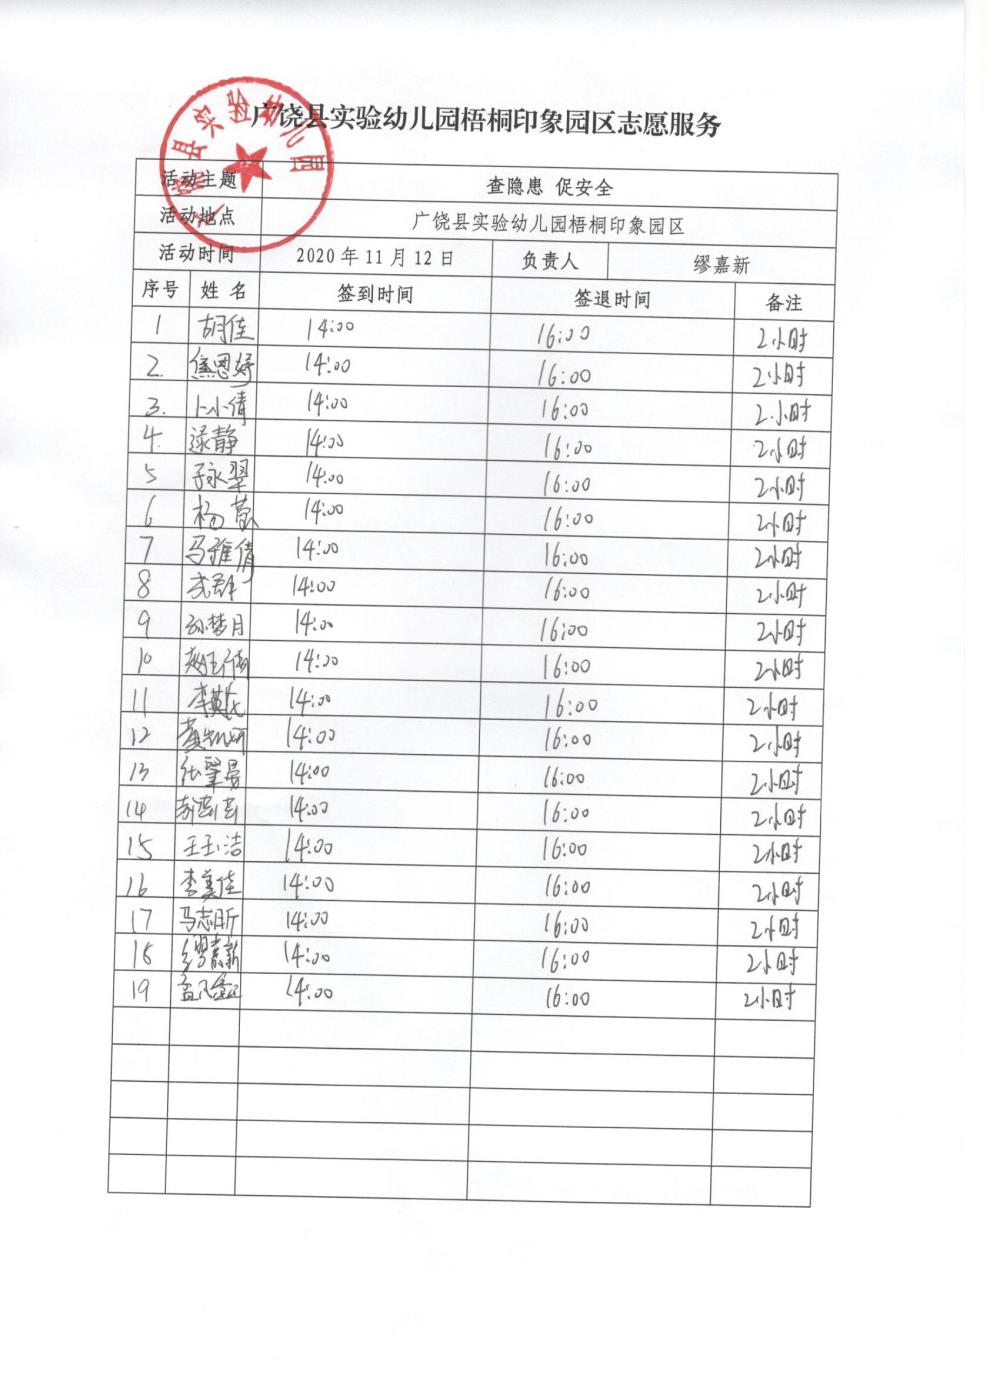 广饶县实验幼儿园梧桐印象园区志愿服务
广饶县实验幼儿园
活动主题 查隐患 促安全
活动地点 广饶县实验幼儿园梧桐印象园区
活动时间 2020年11月12日 负责人 缪嘉新
序号 姓名 签到时间 签退时间 备注
1 胡佳 14:00 16:00 2小时
2. 焦恩婷 14:00 16:00 2小时
3. 卜小倩 14:00 16:00 2小时
4. 逯静 14:00 16:00 2小时
5 永翠 14:00 16:00 2小时
6 杨莹 14:00 16:00 2小时
7 马雅倩 14:00 16:00 2小时
8 14:00 16:00 2小时
9 孙梦月 14:00 16:00 2小时
10 14:00 16:00 2小时
11 李英 14:00 16:00 2小时
12 14:00 16:00 2小时
13 张肇 14:00 16:00 2小时
14 14:00 16:00 2小时
15 王玉洁 14:00 16:00 2小时
16 李美佳 14:00 16:00 2小时
17 马志昕 14:00 16:00 2小时
18 缪嘉新 14:00 16:00 2小时
19 14:00 16:00 2小时